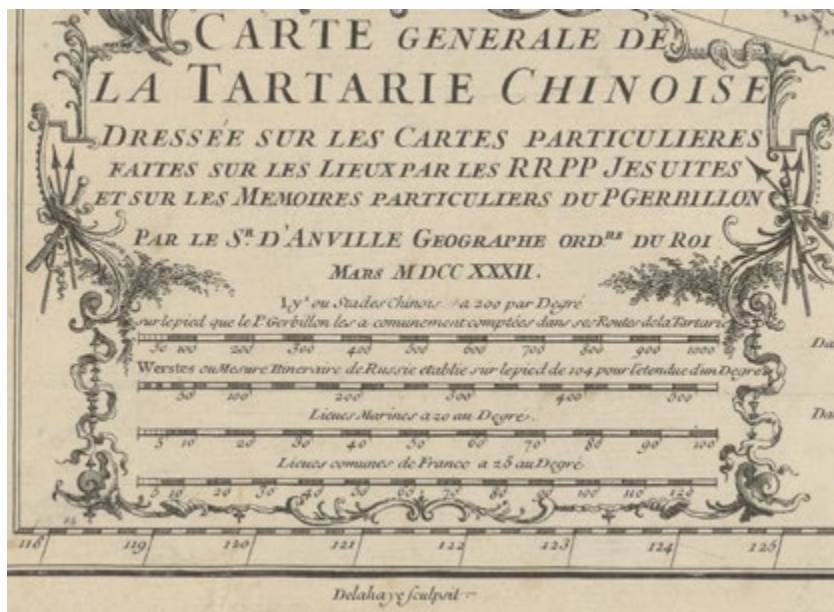 CARTE GENERALE DE
LA TARTARIE CHINOISE
DRESSÉE SUR LES CARTES PARTICULIERES
FAITES SUR LES LIEUX PAR LES RRPP JESUITES
ET SUR LES MEMOIRES PARTICULIERS DU P GERBILLON
PAR LE Sr. D'ANVILLE GEOGRAPHE ORD.re DU ROI
MARS MDCCXXXII.
Lys ou Stades Chinois a 200 par Degré
sur le pied que le P. Gerbillon les a comunement comptées dans ses Routes de la Tartarie
50 100 200 300 400 500 600 700 800 900 1000
Werstes ou Mesure Itineraire de Russie etablie sur le pied de 104 pour l'etendue d'un Degré
50 100 200 300 400 500
Lieues Marines a 20 au Degré.
5 10 20 30 40 50 60 70 80 90 100
Lieues comunes de France a 25 au Degré
5 10 20 30 40 50 60 70 80 90 100 110 120
118 119 120 121 122 123 124 125
Delahaye sculpsit